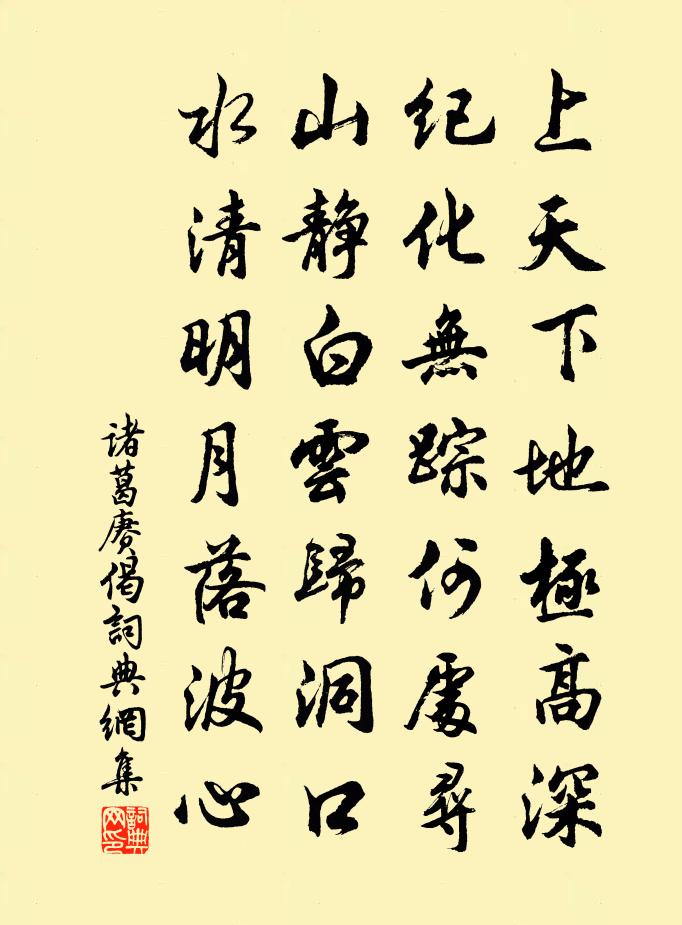 上天下地極高深
紀化無踪何處尋
山靜白雲歸洞口
水清明月落波心
诸葛赓偈詞典網集
詞典网印